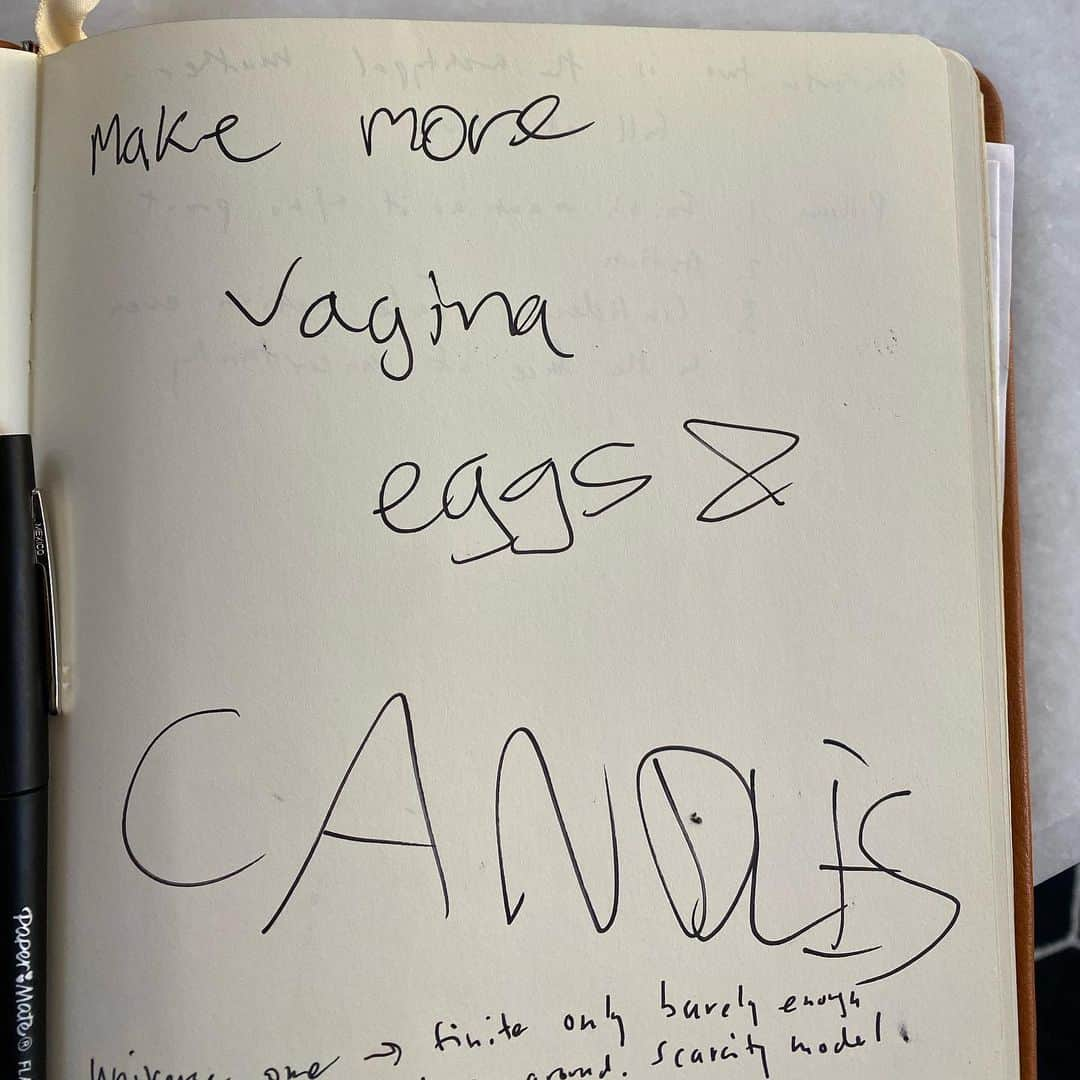 Make more
vagina
eggs &
CANDLES
→ finite only barely enough
one ground. scarcity model.
MEXICO
Paper:Mate® FL